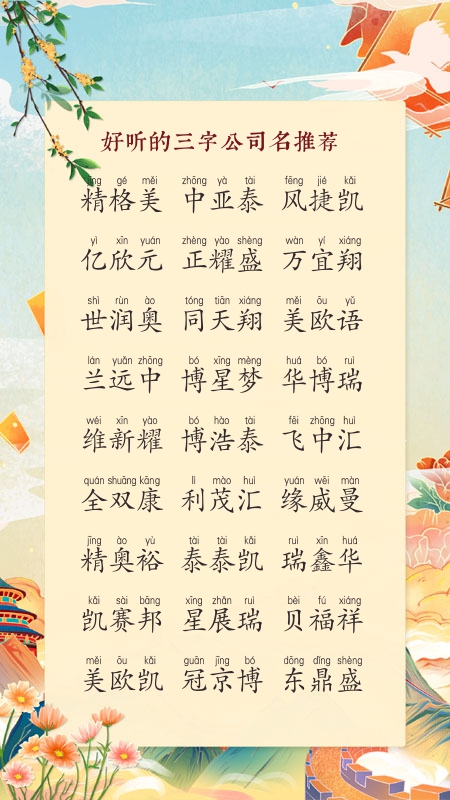 好听的三字公司名推荐
jīng gé měi zhōng yà tài fēng jié kǎi
精格美 中亚泰 风捷凯
yì xīn yuán zhèng yào shèng wàn yí xiáng
亿欣元 正耀盛 万宜翔
shì rùn ào tóng tiān xiáng měi ōu yǔ
世润奥 同天翔 美欧语
lán yuǎn zhōng bó xīng mèng huá bó ruì
兰远中 博星梦 华博瑞
wéi xīn yào bó hào tài fēi zhōng huì
维新耀 博浩泰 飞中汇
quán shuāng kāng lì mào huì yuán wēi màn
全双康 利茂汇 缘威曼
jīng ào yù tài tài kǎi ruì xīn huá
精奥裕 泰泰凯 瑞鑫华
kǎi sài bāng xīng zhǎn ruì bèi fú xiáng
凯赛邦 星展瑞 贝福祥
měi ōu kǎi guān jīng bó dōng dǐng shèng
美欧凯 冠京博 东鼎盛